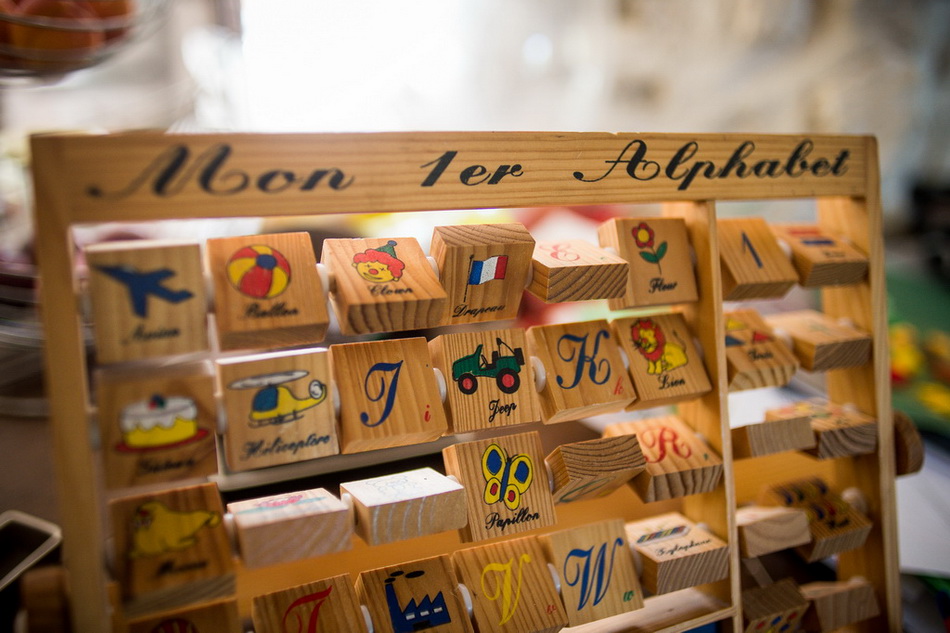 Mon 1er Alphabet
Avion Ballon Clown Drapeau E Fleur 1
Gâteau Hélicoptère I i Jeep K k Lion Trois
Papillon R
T V v W w Xylophone